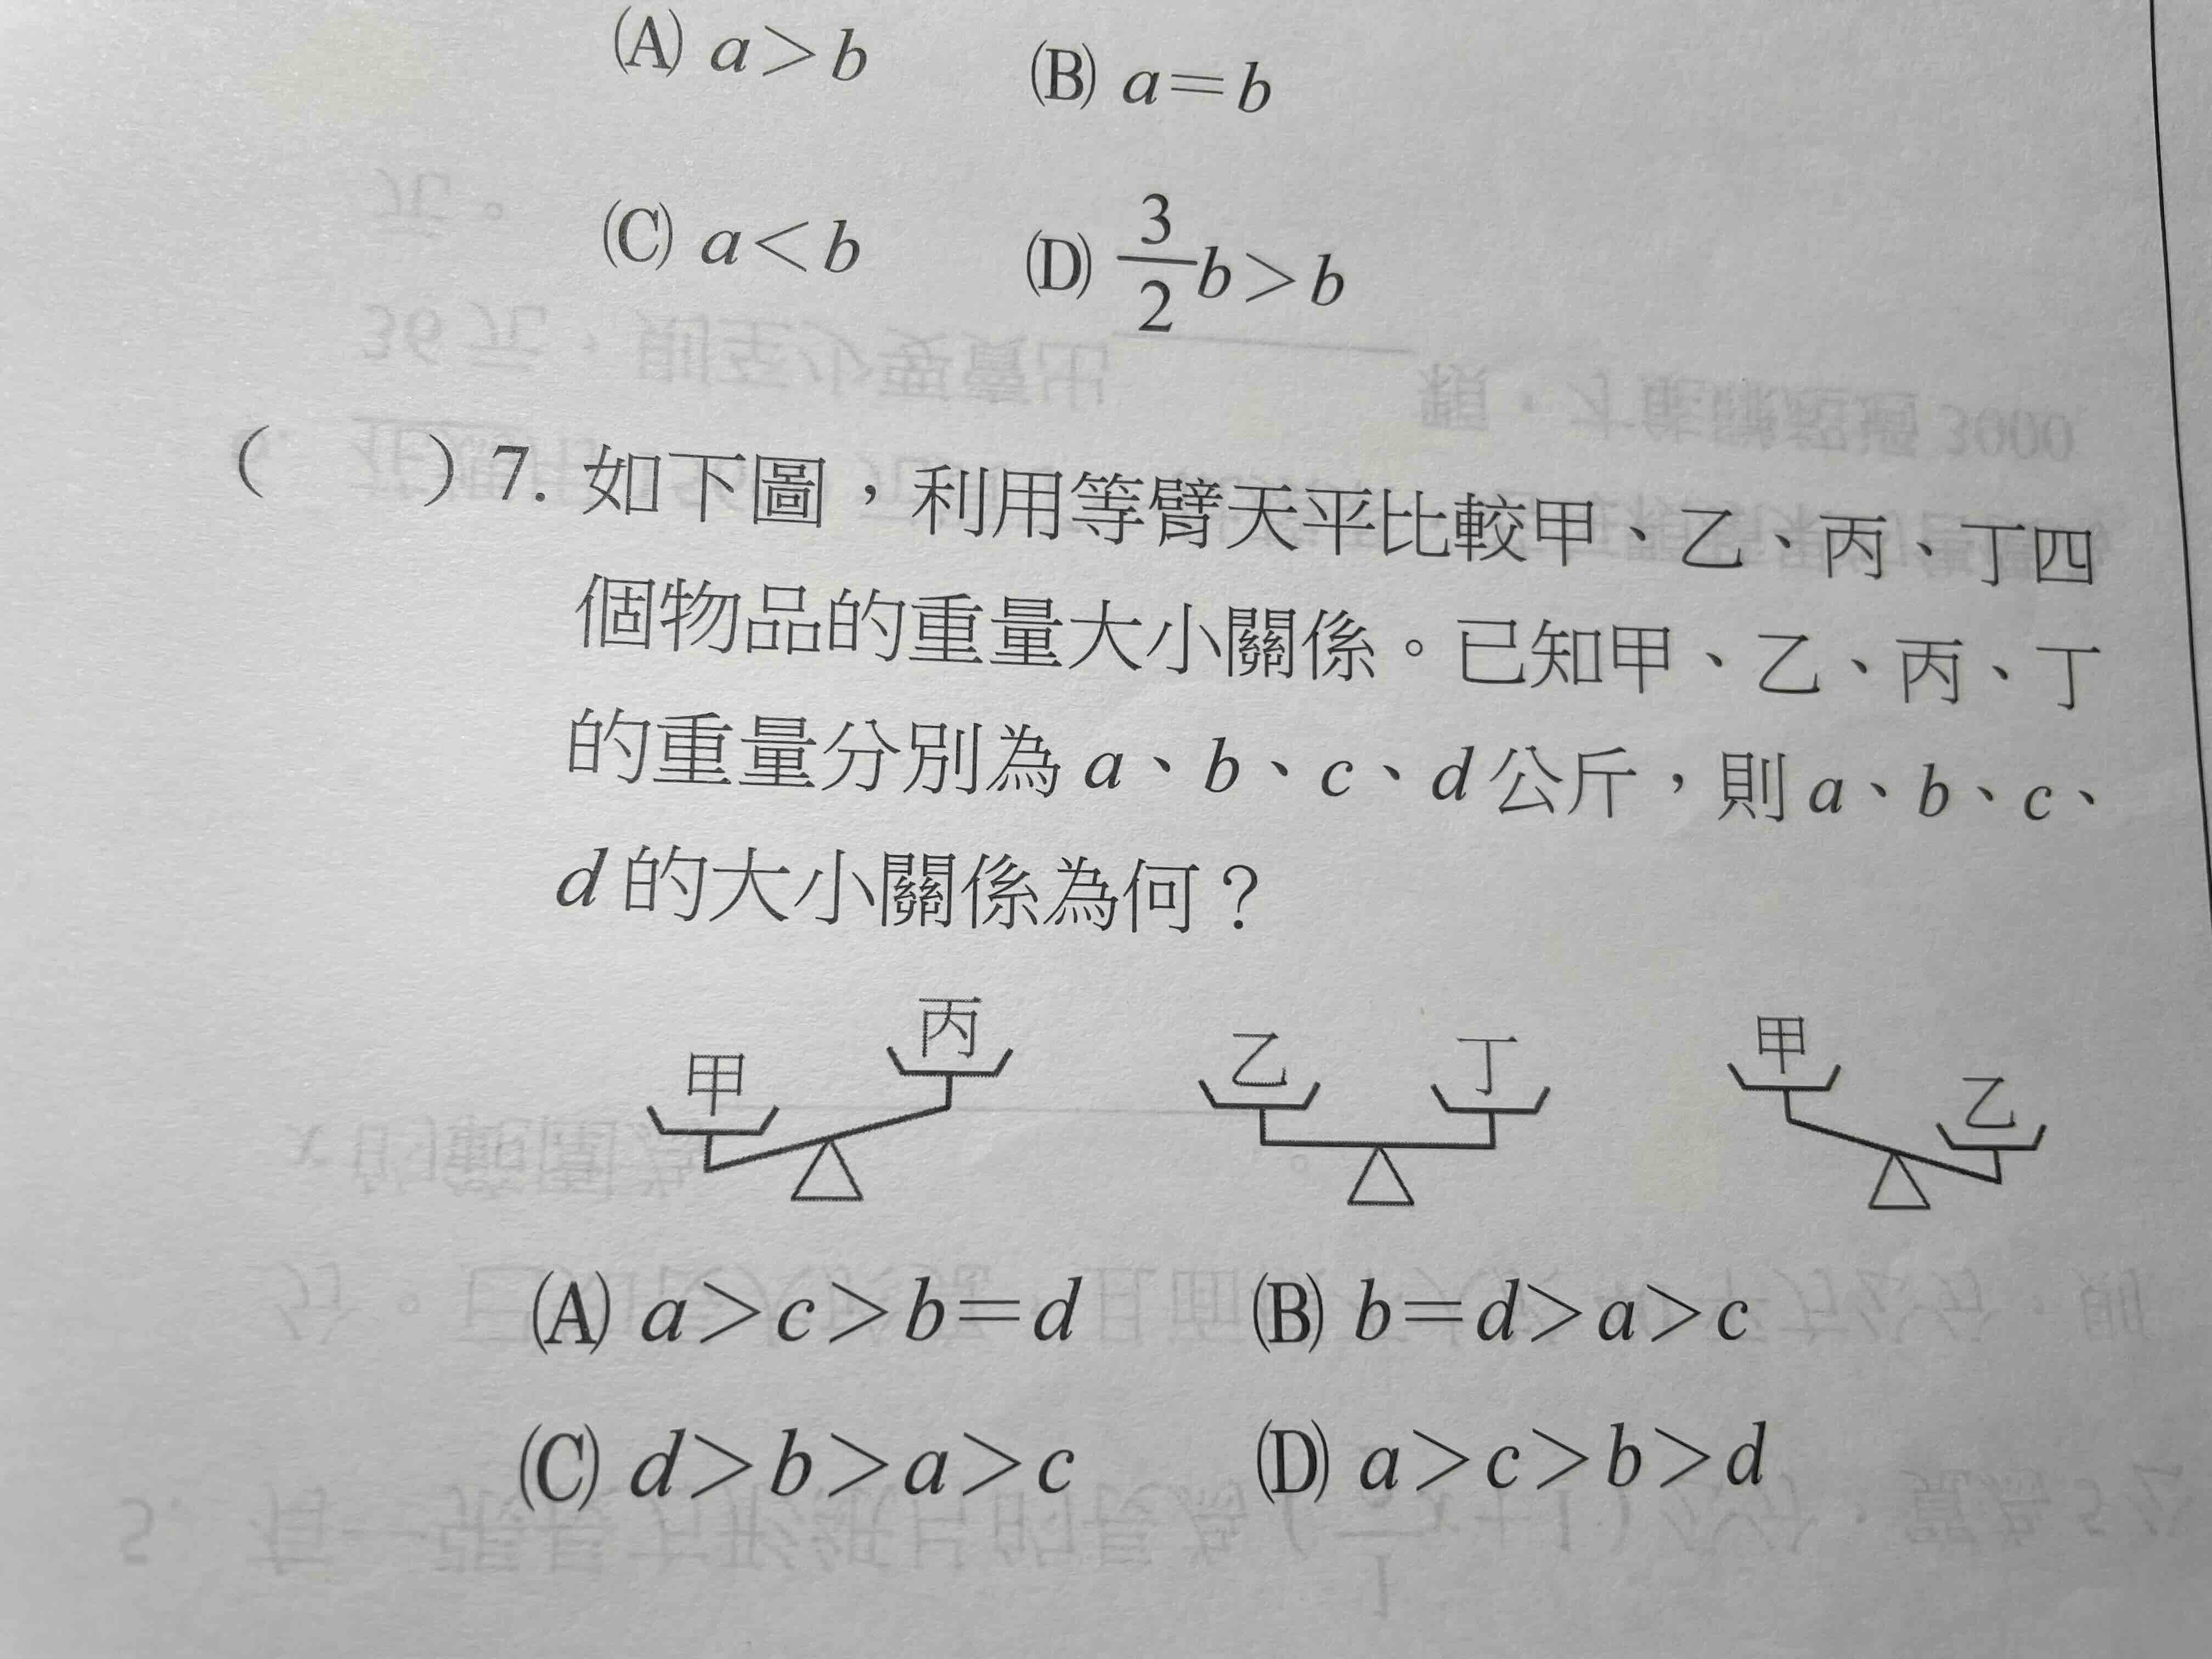 (A) a>b (B) a=b
(C) a<b (D) 3/2 b>b
( ) 7. 如下圖，利用等臂天平比較甲、乙、丙、丁四
個物品的重量大小關係。已知甲、乙、丙、丁
的重量分別為 a、b、c、d 公斤，則 a、b、c、
d 的大小關係為何？
甲 丙 乙 丁 甲 乙
(A) a>c>b=d (B) b=d>a>c
(C) d>b>a>c (D) a>c>b>d